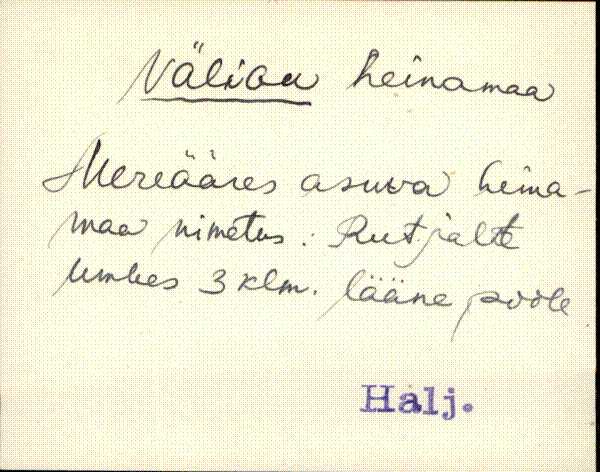 Väliau heinamaa
Mereääres asuva heina-
maa nimetus: Rutjalt
umbes 3 klm. lääne poole
Halj.